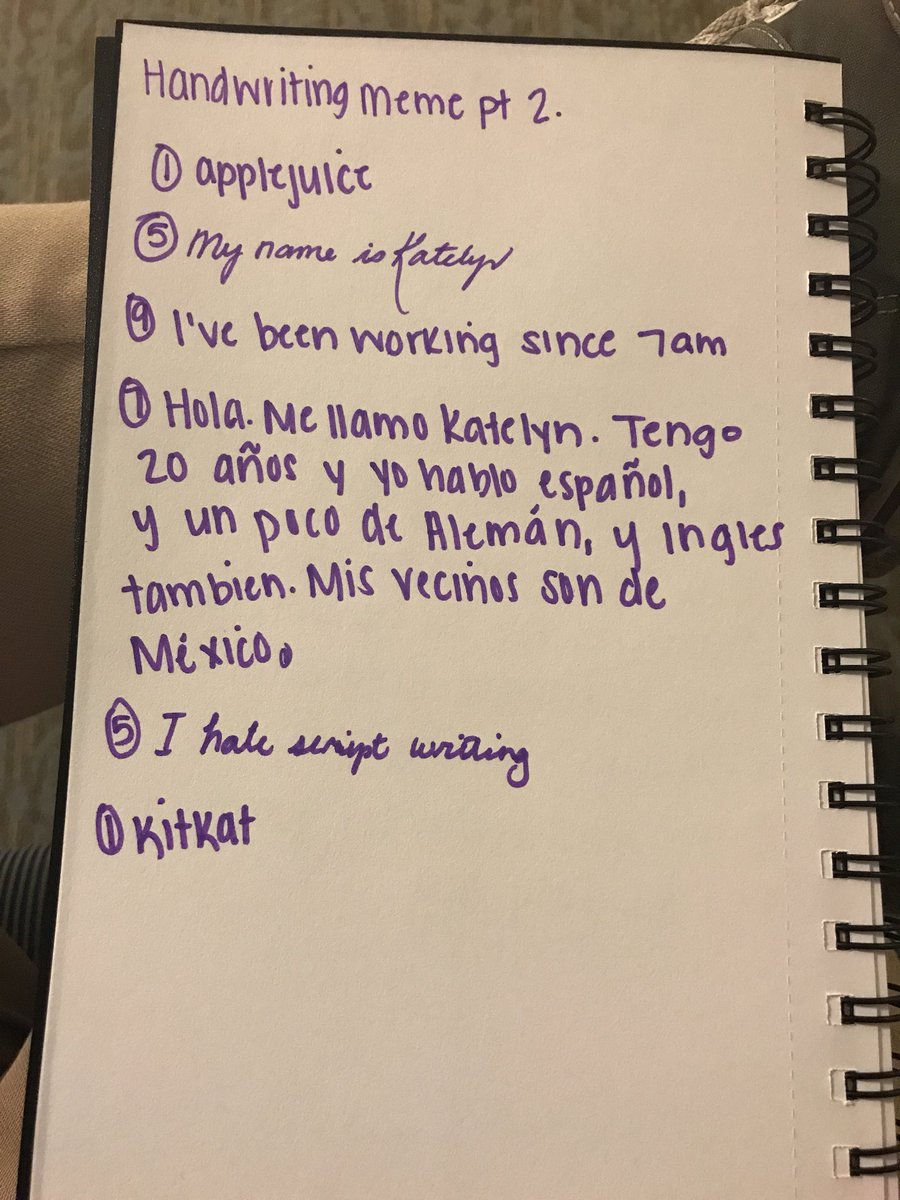 Handwriting Meme pt 2.
① applejuice
⑤ My name is Katelyn
⑨ I've been working since 7am
⑦ Hola. Me llamo Katelyn. Tengo
20 años y yo hablo español,
y un poco de Alemán, y Ingles
tambien. Mis vecinos son de
México.
⑤ I hate script writing
① KitKat